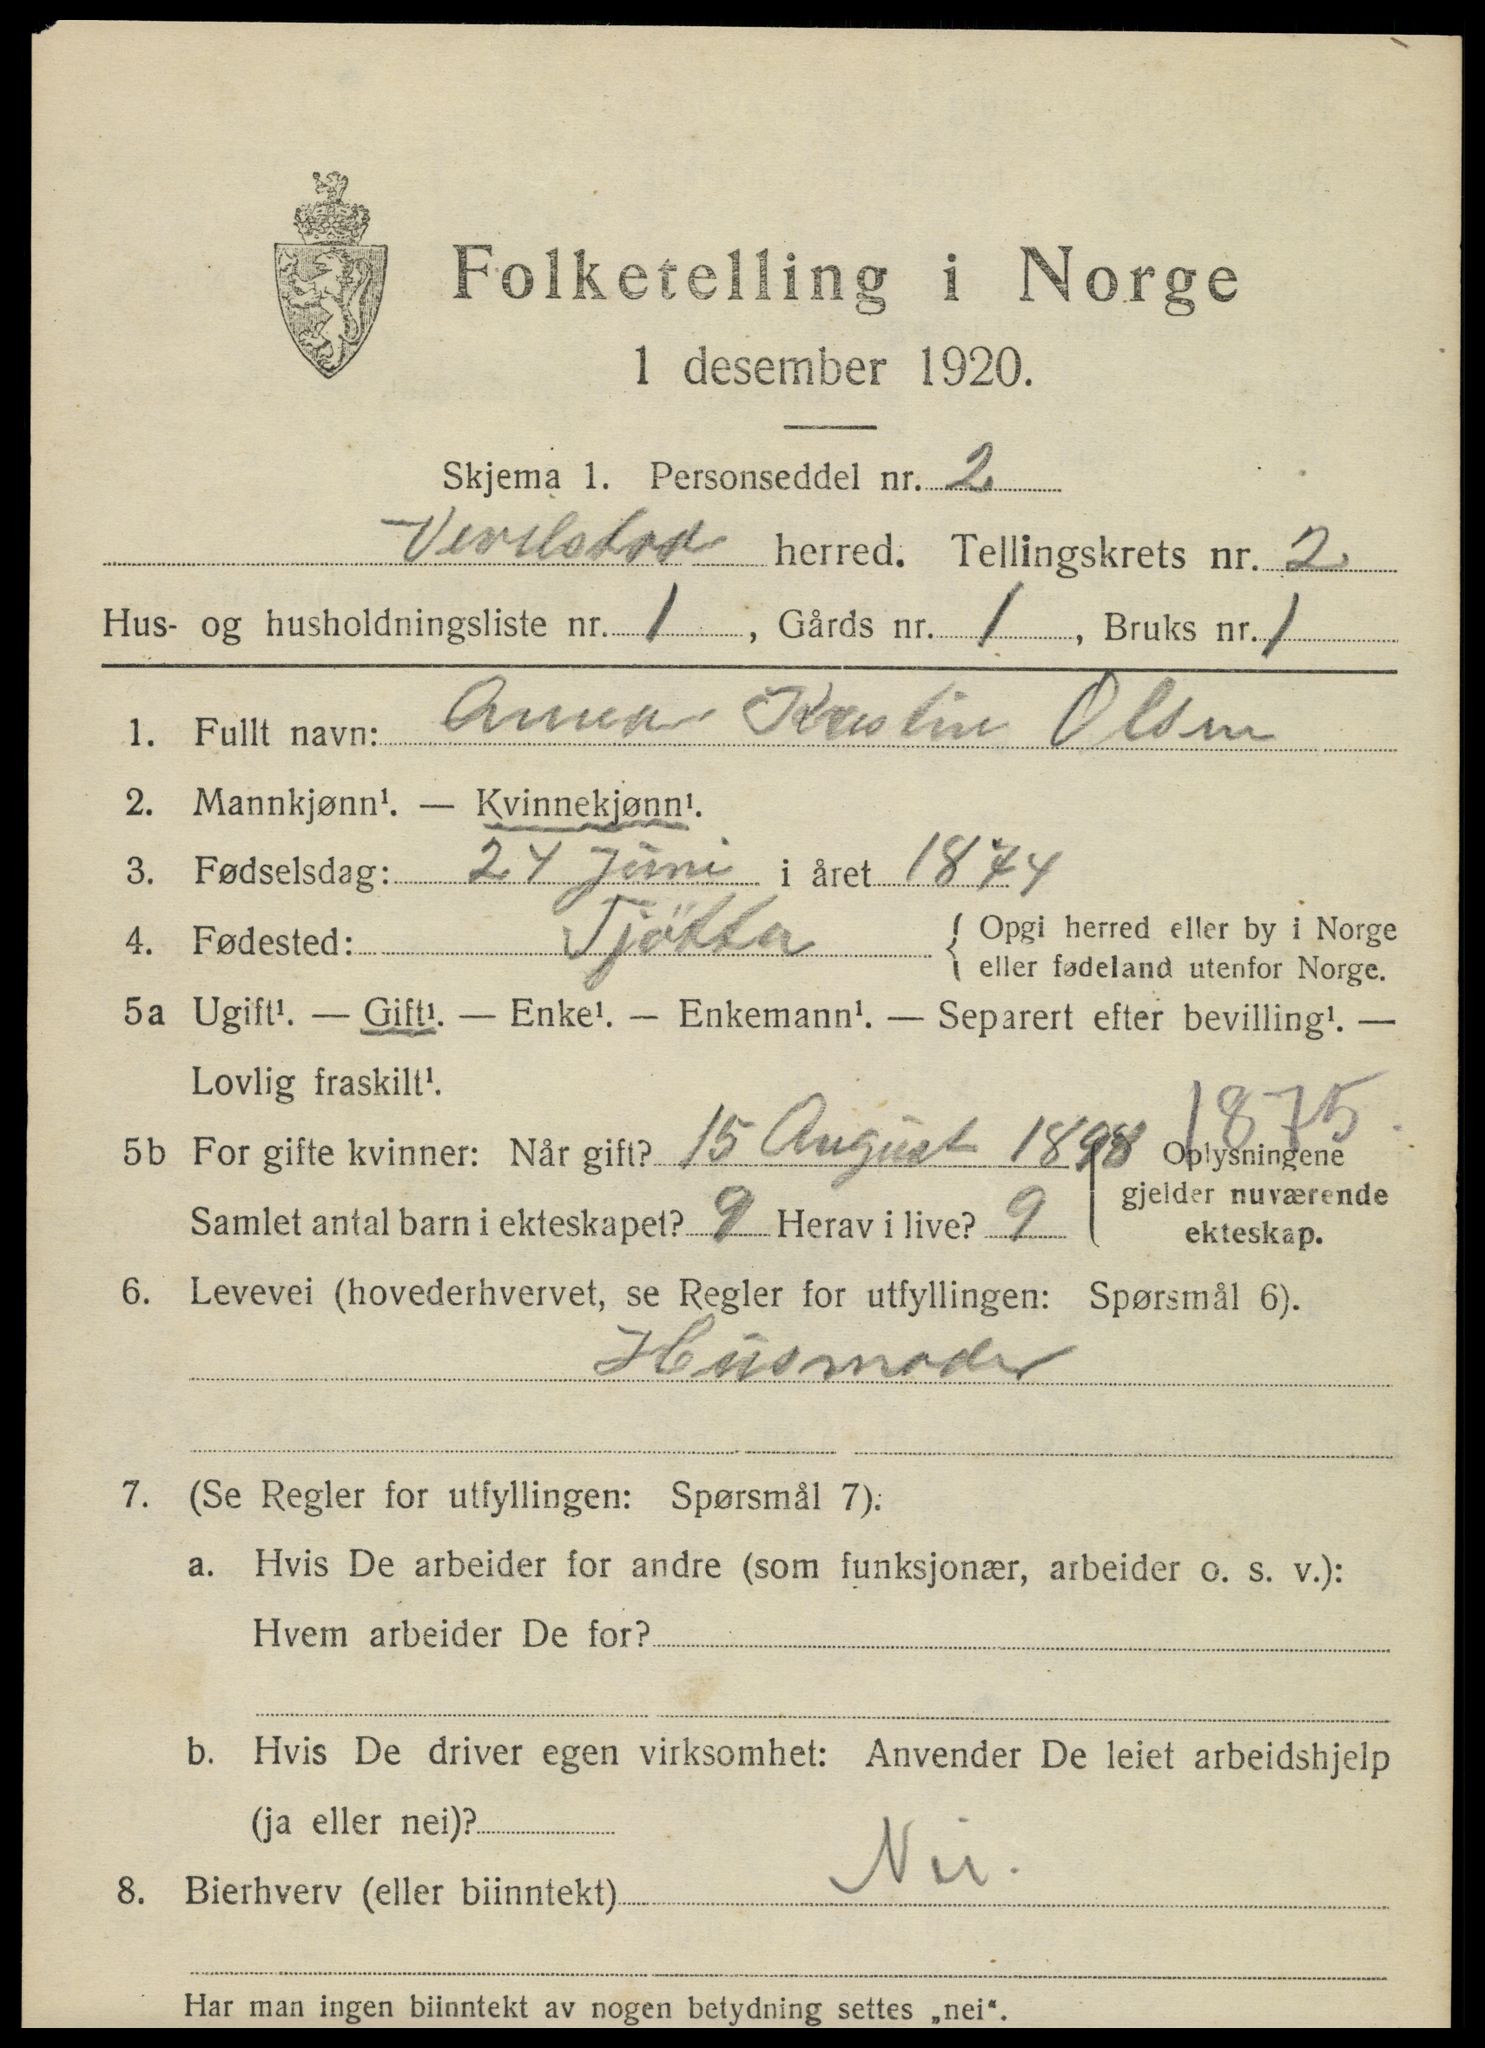 Folketelling i Norge
1 desember 1920.
Skjema 1. Personseddel nr. 2
herred. Tellingskrets nr. 2
Hus- og husholdningsliste nr. 1, Gårds nr. 1, Bruks nr. 1
1. Fullt navn: Anna Kristine Olsen
2. Mannkjønn¹. — Kvinnekjønn¹.
3. Fødselsdag: 24 Juni i året 1874
4. Fødested: Tjötta { Opgi herred eller by i Norge
eller fødeland utenfor Norge.
5a Ugift¹. — Gift¹. — Enke¹. — Enkemann¹. — Separert efter bevilling¹. —
Lovlig fraskilt¹.
1875.
5b For gifte kvinner: Når gift? 15 August 1898 { Oplysningene
gjelder nuværende
Samlet antal barn i ekteskapet? 9 Herav i live? 9
ekteskap.
6. Levevei (hovederhvervet, se Regler for utfyllingen: Spørsmål 6).
Husmoder
7. (Se Regler for utfyllingen: Spørsmål 7):
a. Hvis De arbeider for andre (som funksjonær, arbeider o. s. v.):
Hvem arbeider De for?
b. Hvis De driver egen virksomhet: Anvender De leiet arbeidshjelp
(ja eller nei)?
8. Bierhverv (eller biinntekt) Nei.
Har man ingen biinntekt av nogen betydning settes „nei“.